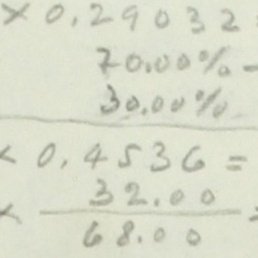 × 0.29032
70.00% -
30.00%
× 0.4536 =
32.00
× 68.00 =